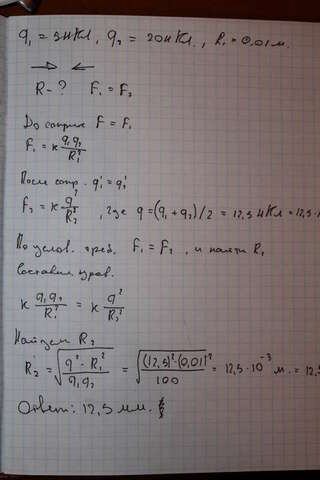 q₁ = 5нКл, q₂ = 20нКл., R₁ = 0,01м.
R - ? F₁ = F₂
До соприк F = F₁
F₁ = к q₁q₂/R₁²
После сопр. q₁' = q₂'
F₂ = к q²/R₂², где q = (q₁ + q₂)/2 = 12,5 нКл = 12,5 · 1
По услов. треб. F₁ = F₂, и найти R₂
Составим урав.
к q₁q₂/R₁² = к q²/R₂²
Найдем R₂
R₂ = √(q² · R₁²/q₁q₂) = √((12,5)² · (0,01)²/100) = 12,5 · 10⁻³ м. = 12,5
Ответ: 12,5 мм.